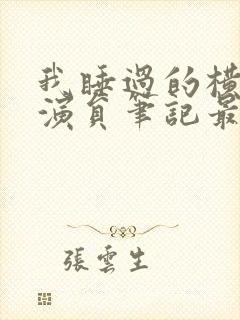 我睡過的橫
演員筆記最
張雲生